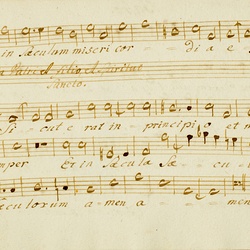 in sæculum miseri cor - - dia e
Patri et filio et Spiritui
Sancto.
si - cut e rat in - principi o et
mper Et in Sæcula Sæ - cu
æculorum a - men a - - - men